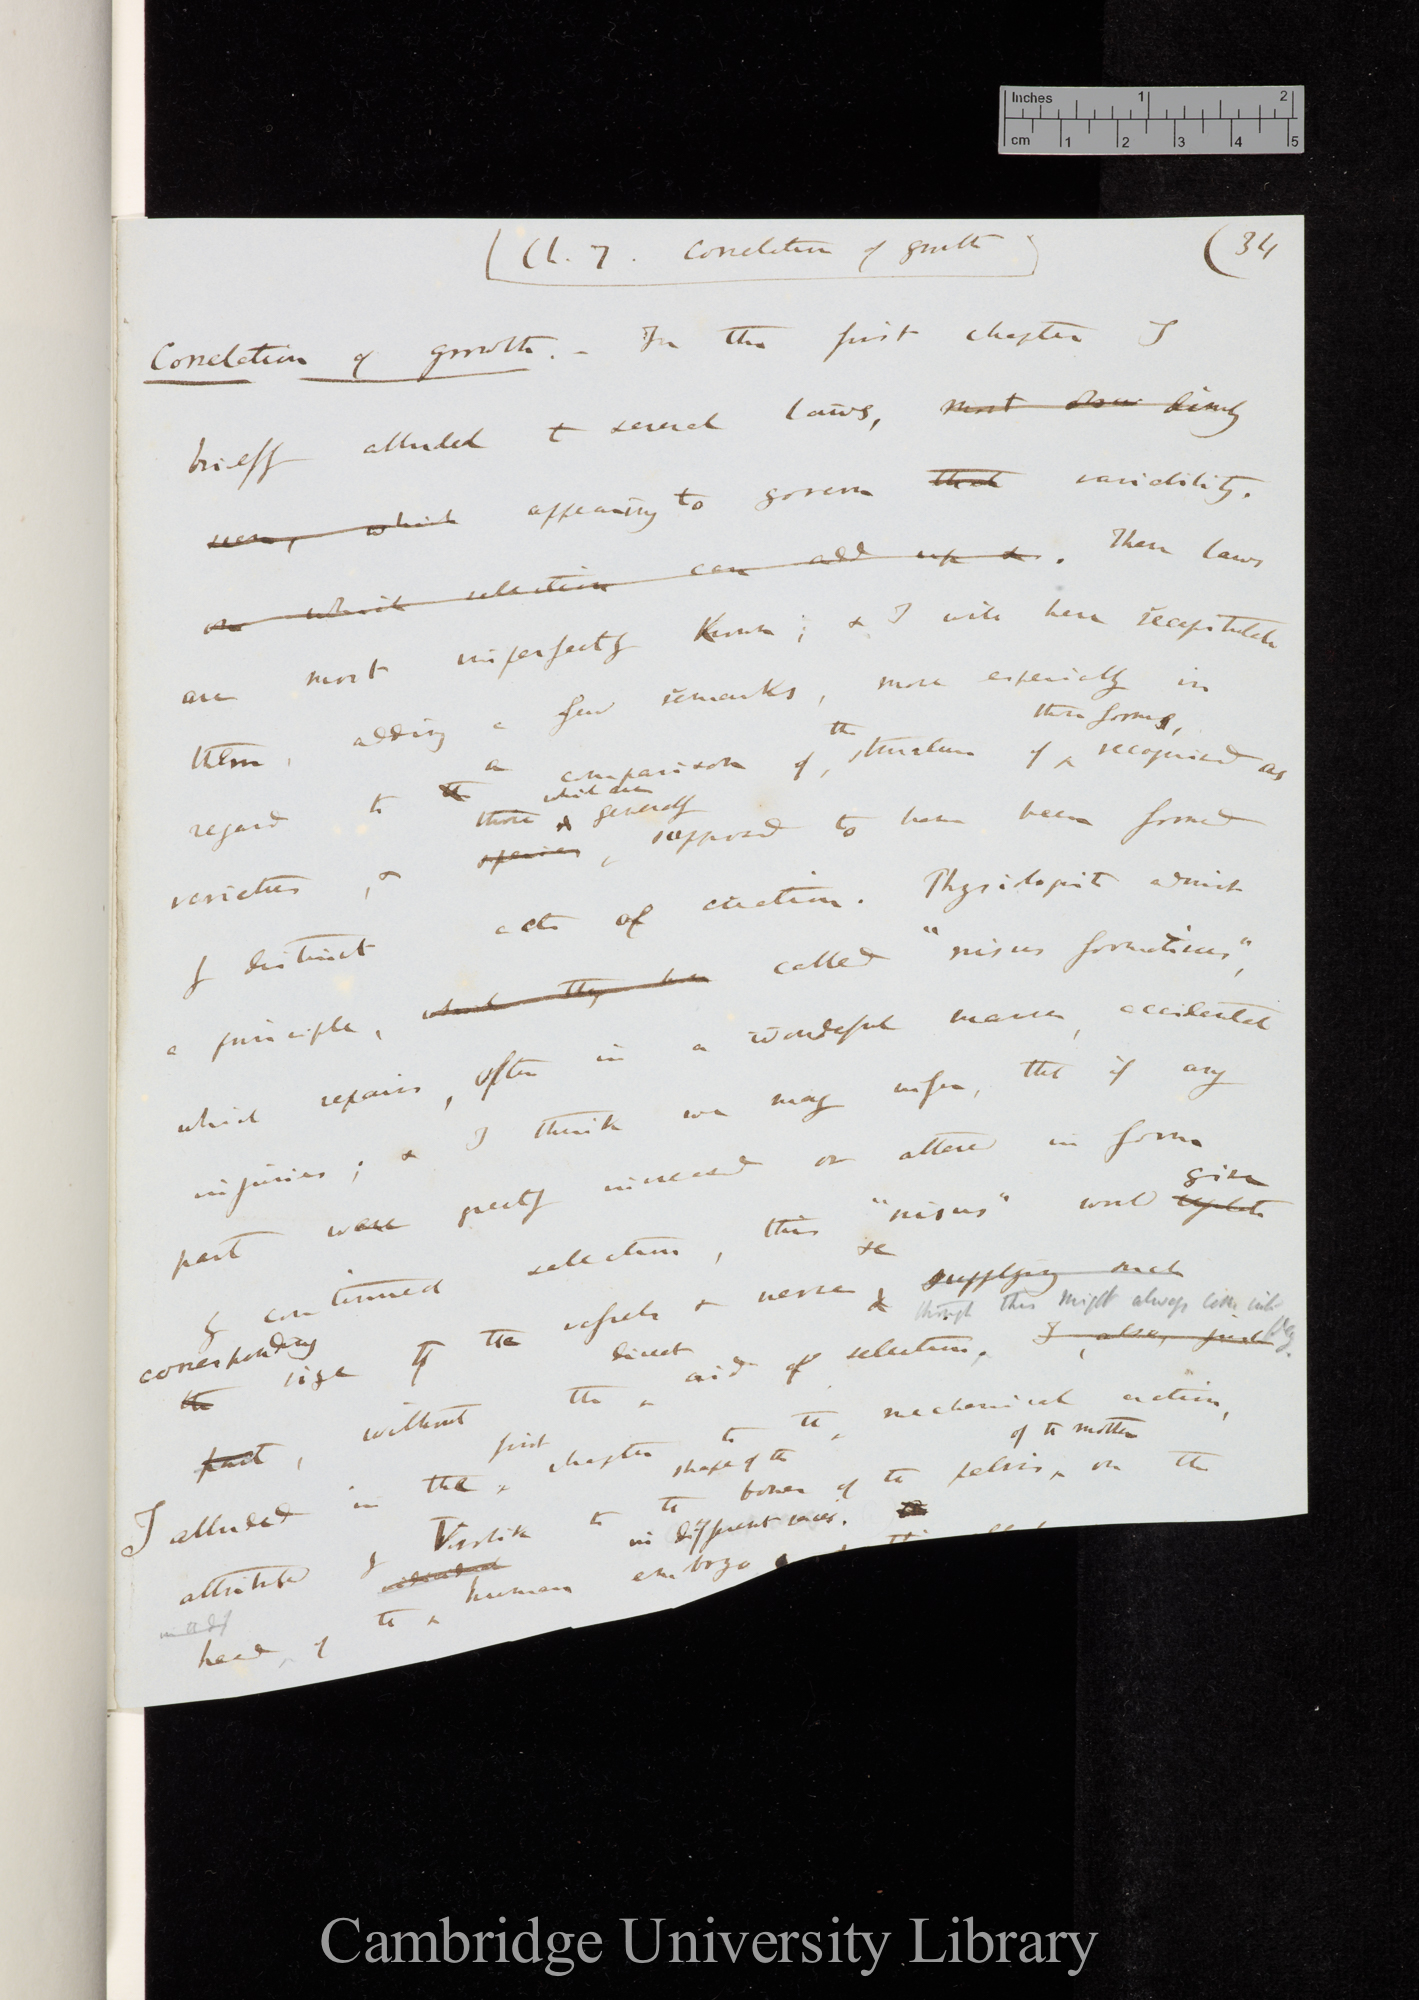 Inches 1 2
cm 1 2 3 4 5
(Ch. 7. Correlation of growth) (34
Correlation of growth. - In the first chapter I
briefly alluded to several laws, most dimly
seen, which appearing to govern that variability.
on which selection can add up. These laws
are most imperfectly known; & I will here recapitulate
them, adding a few remarks, more especially in
the those forms,
regard to the a comparison of, structure of ^ recognised as
those which are generally
varieties, & species, supposed to have been formed
by distinct acts of creation. Physiologist admit
a principle, which they have called "nisus formativus",
which repairs, often in a wonderful manner, accidental
injuries; & I think we may infer, that if any
part were greatly increased or altered in form
given
by continued selection, this "nisus" would
corresponding
the size to the vessels & nerves supplying such
though this might always come into play.
direct
part, without the ^ aid of selection. I, also, just
first
I alluded in the ^ chapter to the ^ mechanical action,
shape of the of the mother
attributed by Vrolik to the bones of the pelvis ^ on the
in different races.
head, of the ^ human embryo
Cambridge University Library